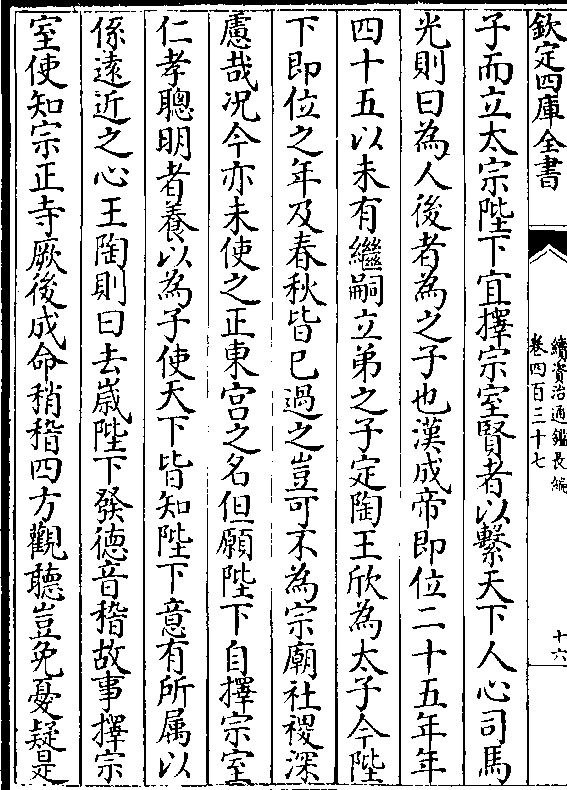 欽定四庫全書
續資治通鑑長編
卷四百三十七
十六
子而立太宗陛下宜擇宗室賢者以繫天下人心司馬
光則曰為人後者為之子也漢成帝即位二十五年年
四十五以未有繼嗣立弟之子定陶王欣為太子今陛
下即位之年及春秋皆已過之豈可不為宗廟社稷深
慮哉况今亦未使之正東宮之名但願陛下自擇宗室
仁孝聰明者養以為子使天下皆知陛下意有所屬以
係遠近之心王陶則曰去嵗陛下發德音稽故事擇宗
室使知宗正寺厥後成命稍稽四方觀聽豈免憂疑是